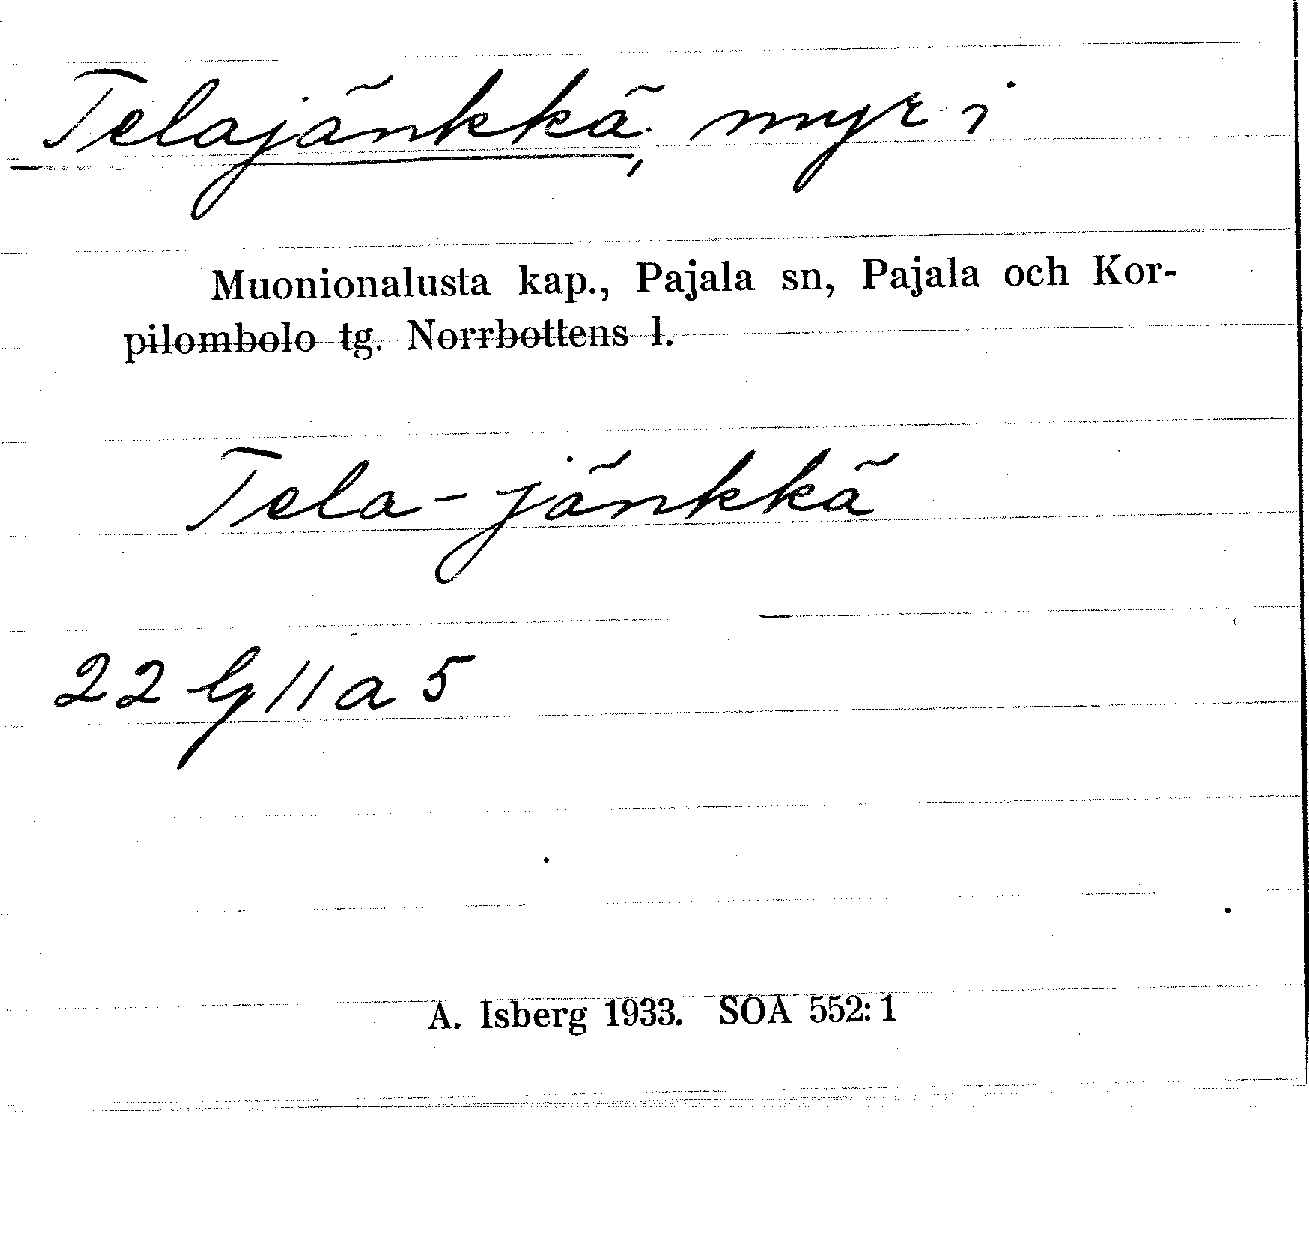 Telajänkkä, myr i
Muonionalusta kap., Pajala sn, Pajala och Kor-
pilombolo tg. Norrbottens l.
Tela-jänkkä
22 G 11 a 5
A. Isberg 1933. SOA 552: 1